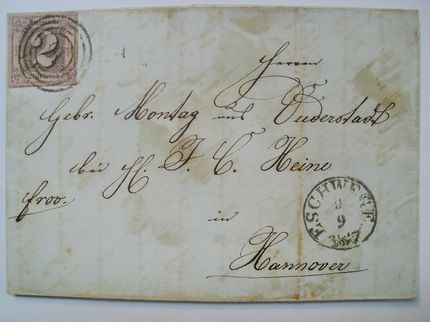 2
Herren
Gebr. Montag aus Duderstadt
bei H. J. C. Heine
froo.
in
Hannover
ESCHWEGE
9